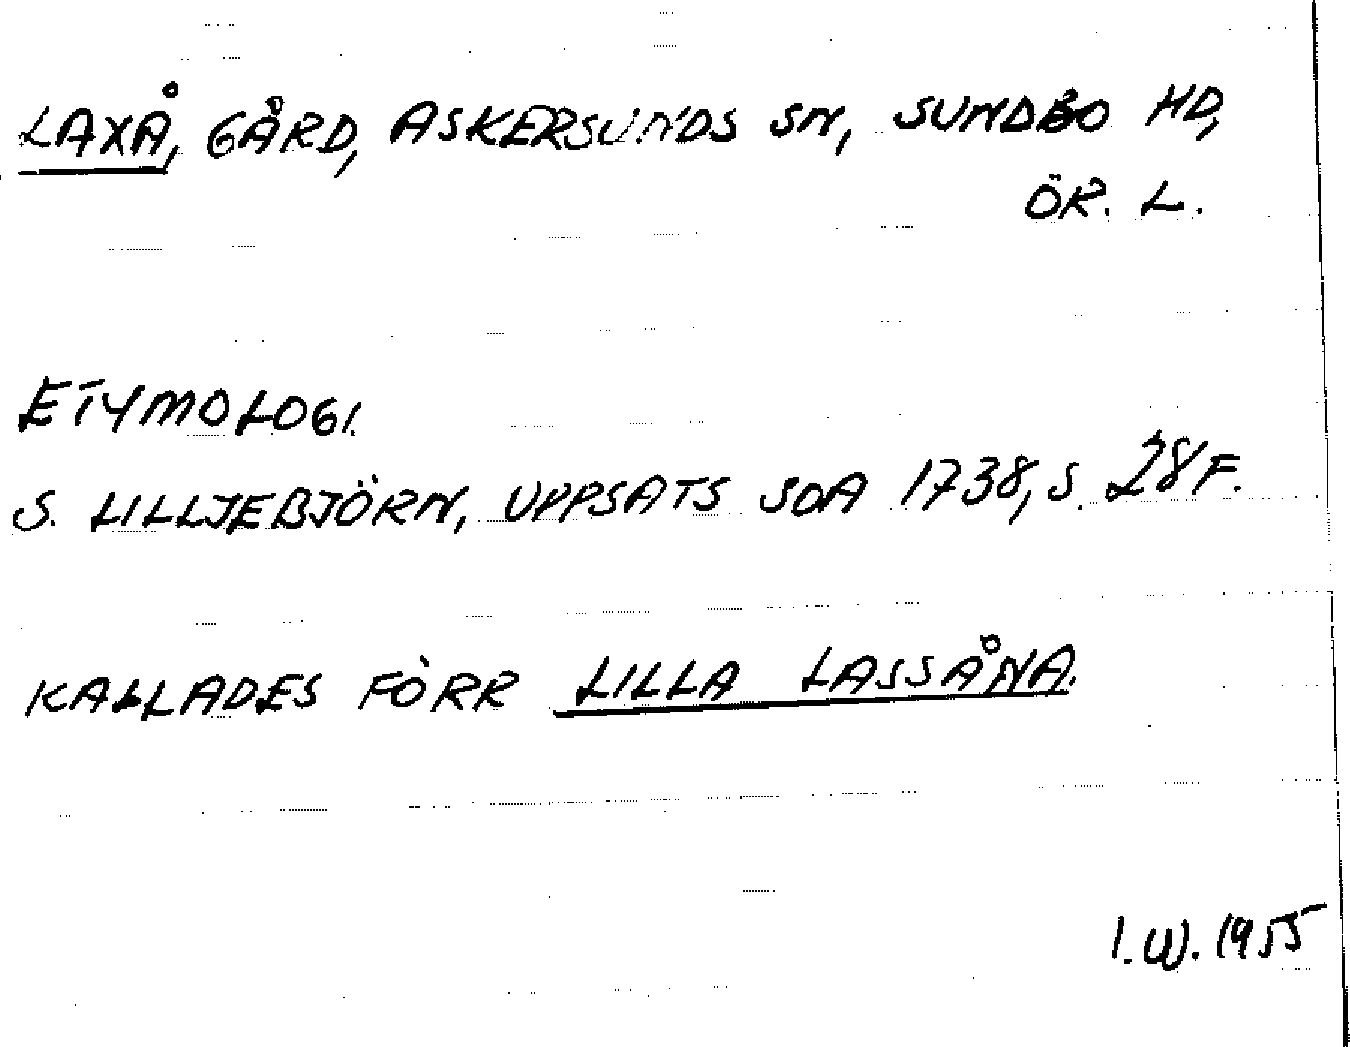 LAXÅ, GÅRD, ASKERSUNDS SN, SUNDBO HD,
ÖR. L.
ETYMOLOGI.
S. LILLJEBJÖRN, UPPSATS SOA 1738, S. 28 F.
KALLADES FÖRR LILLA LASSÅNA.
I.W. 1955